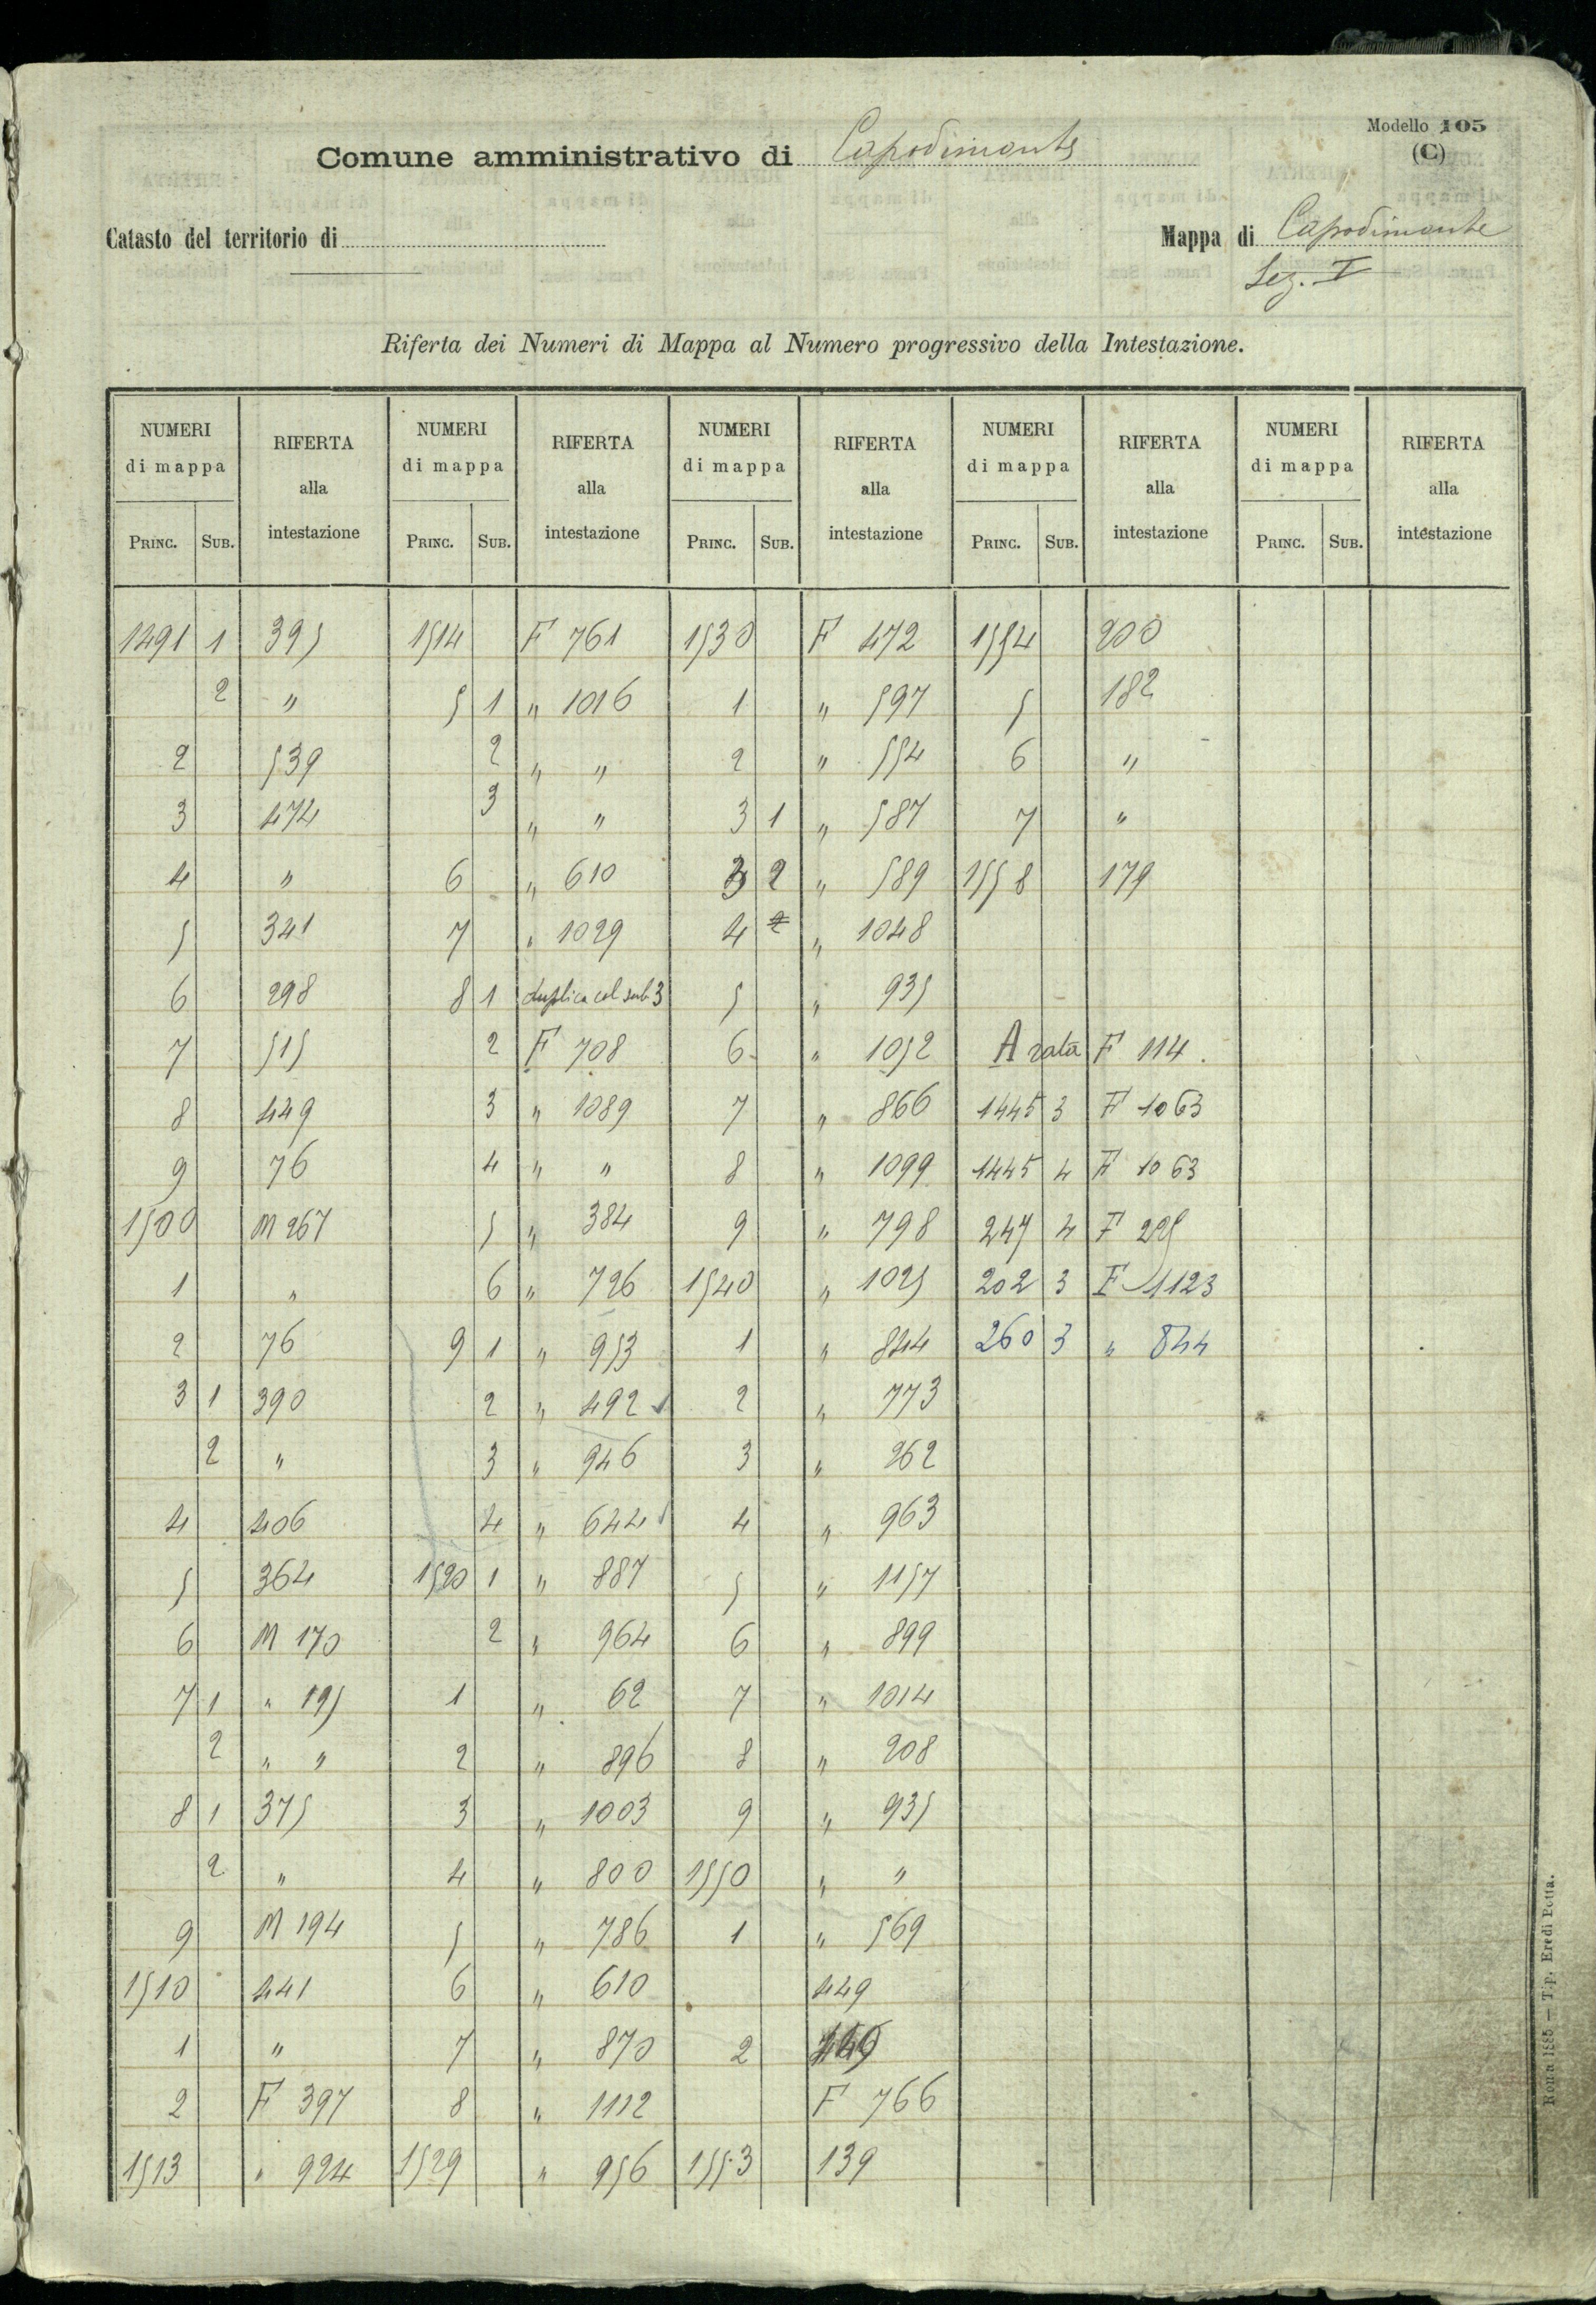 Modello 105
(C)
Comune amministrativo di Capodimonte
Catasto del territorio di
Mappa di Capodimonte
Sez. I
Riferta dei Numeri di Mappa al Numero progressivo della Intestazione.
NUMERI di mappa RIFERTA alla intestazione NUMERI di mappa RIFERTA alla intestazione NUMERI di mappa RIFERTA alla intestazione NUMERI di mappa RIFERTA alla intestazione NUMERI di mappa RIFERTA alla intestazione
PRINC. SUB. PRINC. SUB. PRINC. SUB. PRINC. SUB. PRINC. SUB.
1491 1 395 1514 F 761 1530 F 472 1554 200
2 " 5 1 " 1016 1 " 597 5 182
2 539 2 " " 2 " 554 6 "
3 474 3 " " 3 1 " 587 7 "
4 " 6 " 610 3 2 " 589 1558 179
5 341 7 " 1029 4 " 1048
6 298 8 1 duplica col sub 3 5 " 935
7 515 2 F 708 6 " 1052 A rata F 114.
8 449 3 " 1089 7 " 866 1445 3 F 1063
9 76 4 " " 8 " 1099 1445 4 F 1063
1500 M 267 5 " 384 9 " 798 247 4 F 225
1 " 6 " 726 1540 " 1025 202 3 F 1123
2 76 9 1 " 953 1 " 844 260 3 " 844
3 1 390 2 " 492 2 " 773
2 " 3 " 946 3 " 262
4 406 4 " 644 4 " 963
5 364 1520 1 " 887 5 " 1157
6 M 170 2 " 964 6 " 899
7 1 " 195 1 " 62 7 " 1014
2 " " 2 " 896 8 " 208
8 1 375 3 " 1003 9 " 935
2 " 4 " 800 1550 " "
9 M 194 5 " 786 1 " 569
1510 441 6 " 610 449
1 " 7 " 870 2
2 F 397 8 " 1112 F 766
1513 " 924 1529 " 956 1553 139
Roma 1885 — Tip. Eredi Botta.